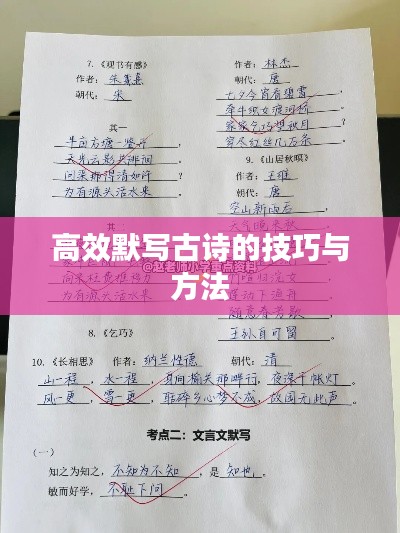 7. 《观书有感》
作者：朱熹
朝代：宋
其一
半亩方塘一鉴开
天光云影共徘徊
问渠那得清如许？
为有源头活水来
向来枉费推移力
8. 《乞巧》
作者：林杰
朝代：唐
七夕今宵看碧霄
牵牛织女渡河桥
家家乞巧望秋月
穿尽红丝几万条
9. 《山居秋暝》
作者：王维
朝代：唐
空山新雨后
天气晚来秋
莲动下渔舟
随意春芳歇
王孙自可留
高效默写古诗的技巧与
方法
@赵老师小学重点资料
10. 《长相思》 作者：纳兰性德 朝代：清
山一程，水一程，身向榆关那畔行，夜深千帐灯。
风一更，雪一更，聒碎乡心梦不成，故园无此声。
考点二：文言文默写
（一）
知之为知之，不知为不知，是知也。
敏而好学，不耻下问。